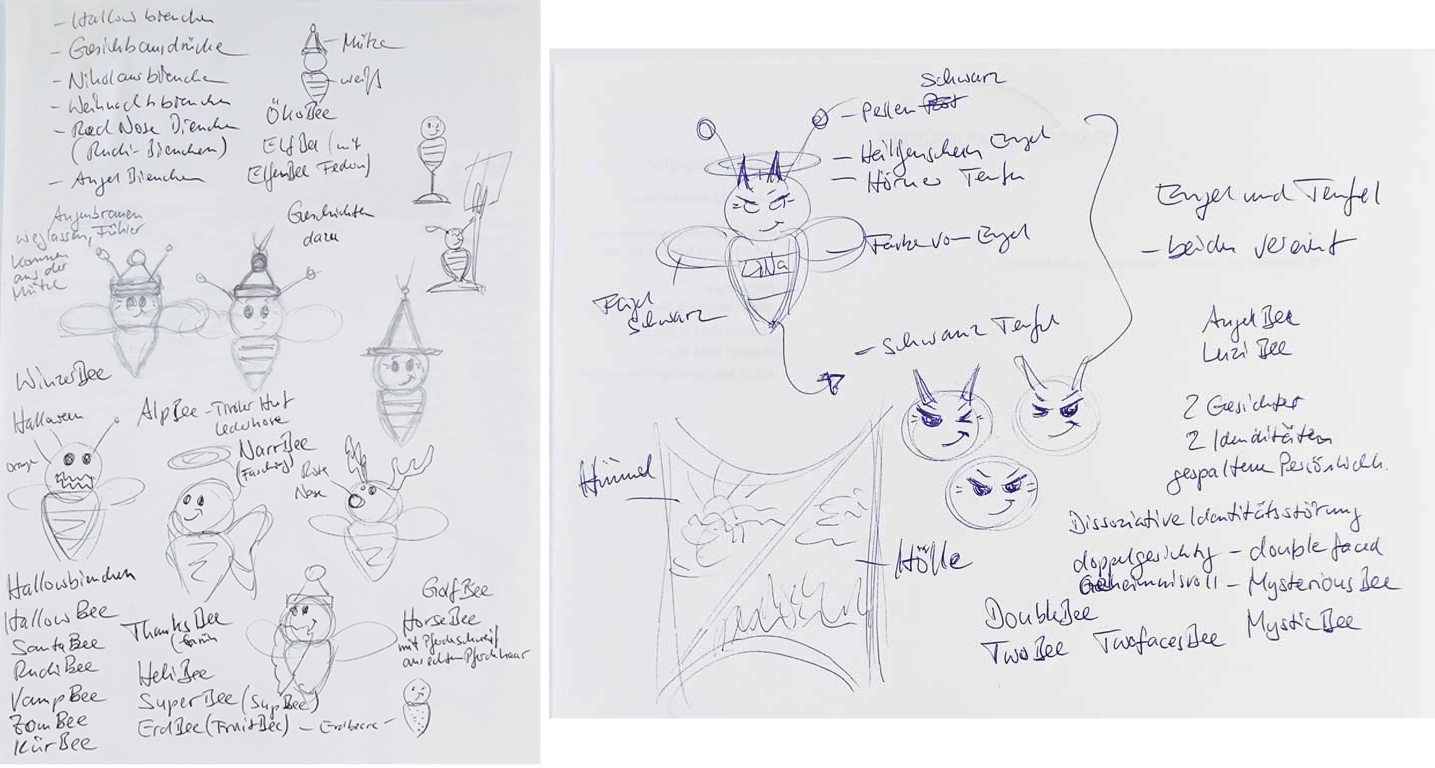 - Hallowbienchen
- Gesichtsausdrücke
- Nikolausbienchen
- Weihnachtsbienchen
- Red Nose Bienchen
(Rudi-Bienchen)
- Angel Bienchen
- Mütze
- weiß
ÖkoBee
ElfBee (mit
ElfenBee Federn)
Augenbrauen
weglassen, Fühler
kommen
aus der
Mütze
Geschichten
dazu
WinzerBee
Halloween
orange
AlpBee - Tiroler Hut
Lederhose
NarrBee
(Fasching)
Rote
Nase
Hallowbienchen
HallowBee
SantaBee
RudiBee
VampBee
ZomBee
KürBee
ThanksBee
HeliBee
SuperBee (SupBee)
ErdBee (FruitBee) - Erdbeere -
GolfBee
HorseBee
mit Pferdeschweif
aus echtem Pferdehaar
Schwarz
- Perlen
- Heiligenschein Engel
- Hörner Teufel
- Farbe vom Engel
Flügel
Schwarz
- Schwanz Teufel
Himmel
- Hölle
Engel und Teufel
- beides vereint
AngelBee
LuziBee
2 Gesichter
2 Identitäten
gespaltene Persönlichk.
Dissoziative Identitätsstörung
doppelgesichtig - double faced
Geheimnisvoll - MysteriousBee
DoubleBee
TwoBee TwofacesBee MysticBee